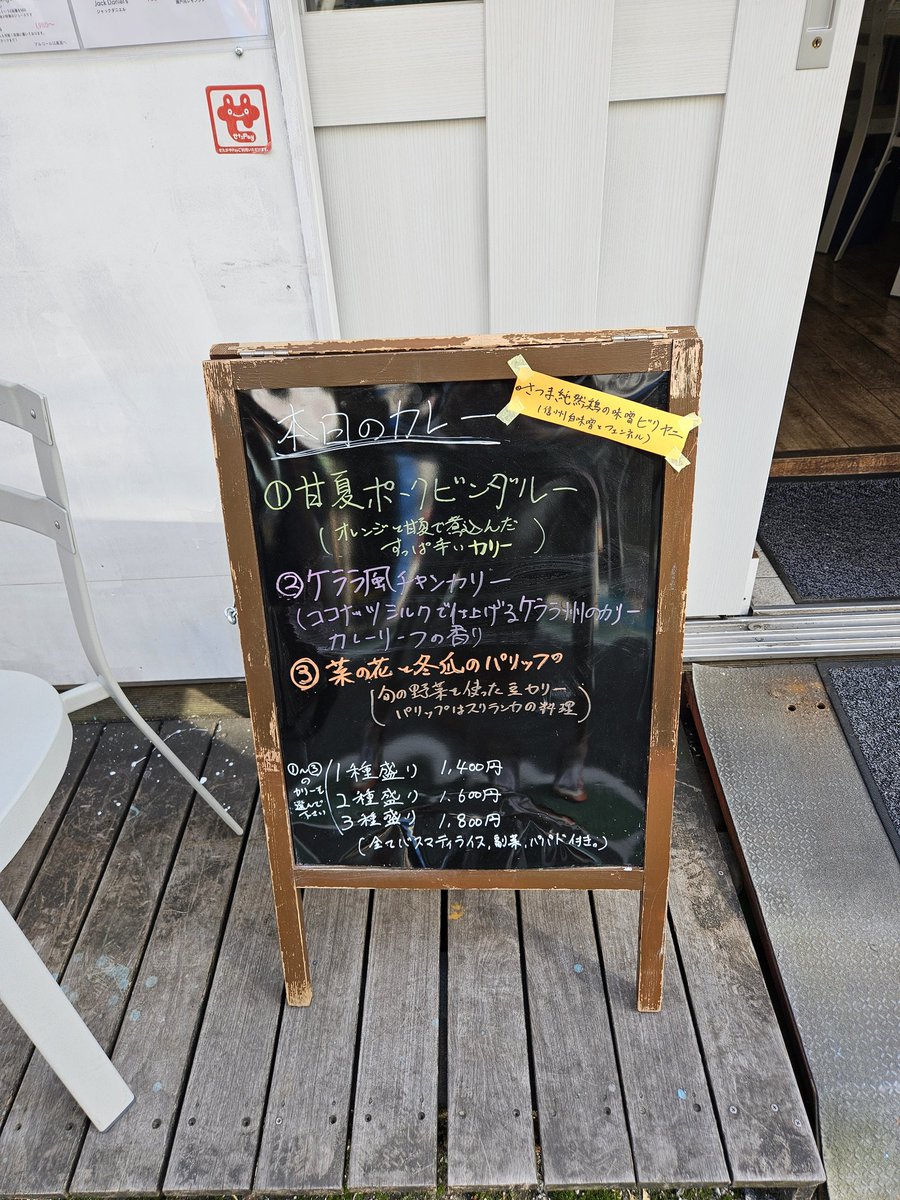 Jack Daniel's
ジャックダニエル
せたPay
本日のカレー
・さつま純然鶏の味噌ビリヤニ
(信州白味噌とフェンネル)
①甘夏ポークビンダルー
(オレンジと甘夏で煮込んだ
すっぱ辛いカリー)
②ケララ風チキンカリー
(ココナッツミルクで仕上げるケララ州のカリー
カレーリーフの香り
③菜の花と冬瓜のパリップ
(旬の野菜を使った豆カリー
パリップはスリランカの料理)
①〜③
の
カリーを
選んで
下さい
1種盛り 1,400円
2種盛り 1,600円
3種盛り 1,800円
(全てバスマティライス,副菜,パパド付き。)